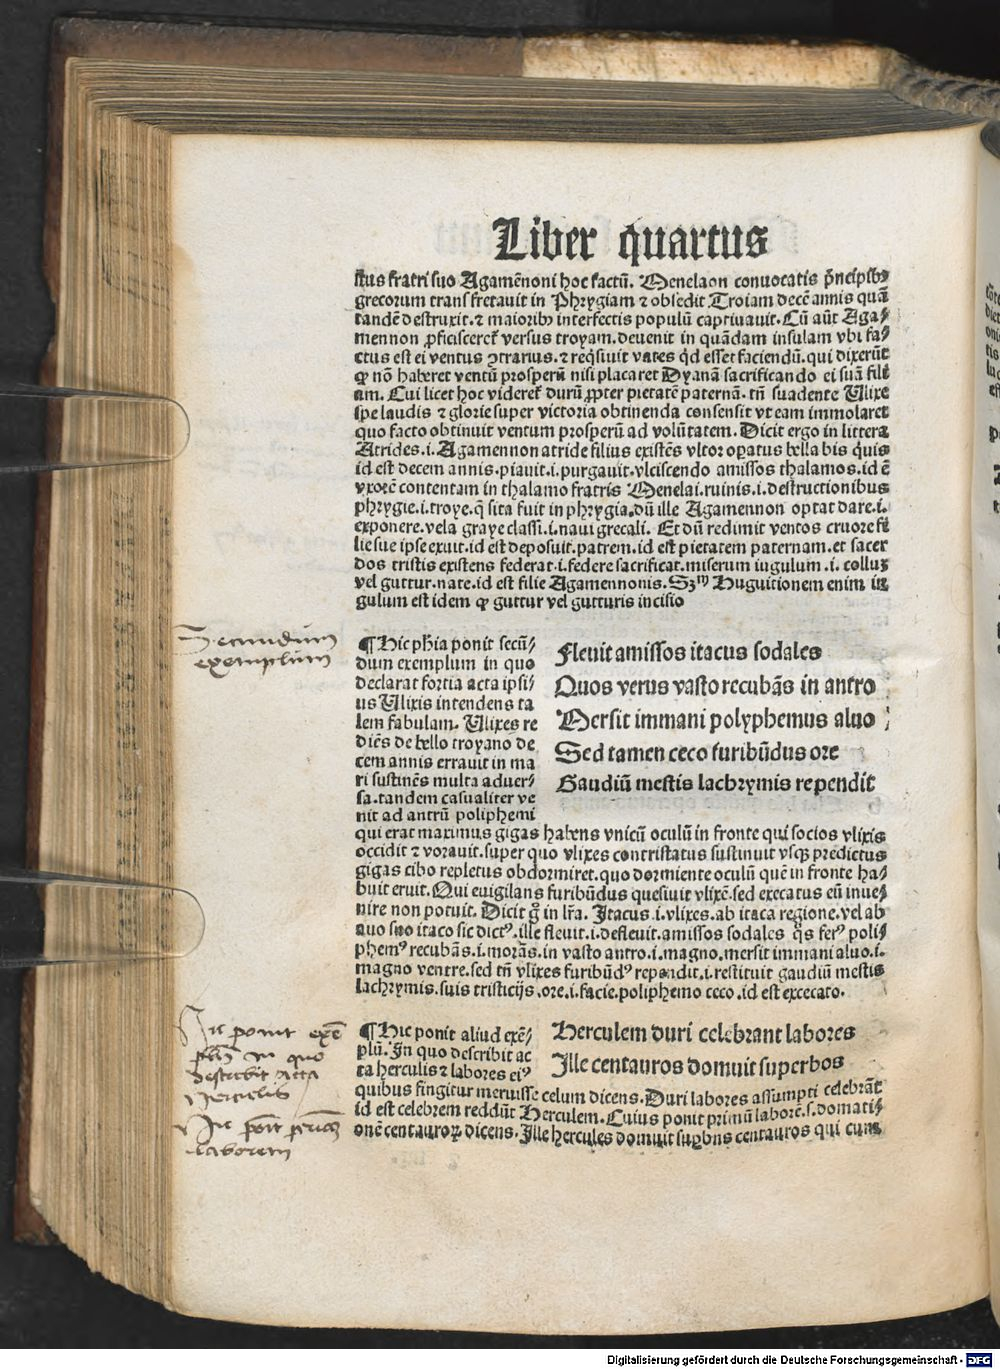 Liber quartus
ſtus fratri ſuo Agamēnoni hoc factū. Menelaon conuocatis pͥncipibꝰ
grecorum transfretauit in Phrygiam ⁊ obſedit Troiam decē annis quā
tandē deſtruxit.⁊ maioribꝰ interfectis populū captiuauit. Cū aūt Aga⸗
mennon ꝓficiſceret᷑ verſus troyam.deuenit in quādam inſulam vbi fa⸗
ctus eſt ei ventus ꝯtrarius.⁊ reqͥſiuit vates qͥd eſſet faciendū.qui dixerūt
ꝙ nō haberet ventū proſperū niſi placaret Dyanā ſacrificando ei ſuā fili
am. Cui licet hoc videret᷑ durū ꝓpter pietatē paternā. tn̄ ſuadente Ulixe
ſpe laudis ⁊ glorie ſuper victoria obtinenda conſenſit vt eam immolaret
quo facto obtinuit ventum proſperū ad volūtatem. Dicit ergo in littera
Atrides.i.Agamennon atride filius exiſtēs vltor opatus bella bis qͥnis
id eſt decem annis.piauit.i.purgauit.vlciſcendo amiſſos thalamos.id ē
vxorē contentam in thalamo fratris Menelai.ruinis.i.deſtructionibus
phrygie.i.troye.ꝙ ſita fuit in phrygia.dū ille Agamennon optat dare.i.
exponere.vela graye claſſi.i.naui grecali. Et dū redimit ventos cruore fi
lie ſue ipſe exuit.id eſt depoſuit.patrem.id eſt pietatem paternam.et ſacer
dos triſtis exiſtens federat.i.federe ſacrificat.miſerum iugulum.i.collum
vel guttur.nate.id eſt filie Agamennonis. Sꝫm̄ Huguitionem enim iu
gulum eſt idem ꝙ guttur vel gutturis inciſio
Secundum
exemplum
¶ Hic phīa ponit ſecū⸗
dum exemplum in quo
declarat fortia acta ipſi⸗
us Ulixis intendens ta
lem fabulam. Ulixes re
diēs de bello troyano de
cem annis errauit in ma
ri ſuſtinēs multa aduer⸗
ſa.tandem caſualiter ve
nit ad antrū poliphemi
Fleuit amiſſos itacus ſodales
Quos verus vaſto recubās in antro
Merſit immani polyphemus aluo
Sed tamen ceco furibūdus ore
Gaudiū meſtis lachrymis rependit
qui erat maximus gigas habens vnicū oculū in fronte qui ſocios vlixis
occidit ⁊ vorauit.ſuper quo vlixes contriſtatus ſuſtinuit vſqꝫ predictus
gigas cibo repletus obdormiret.quo dormiente oculū quē in fronte ha⸗
buit eruit. Qui euigilans furibūdus queſiuit vlixē.ſed execatus eū inue⸗
nire non potuit. Dicit gͦ in lr̄a. Itacus.i.vlixes.ab itaca regione.vel ab
auo ſuo itaco ſic dictꝰ.ille fleuit.i.defleuit.amiſſos ſodales qͦs ferꝰ poli⸗
phemꝰ recubās.i.morās.in vaſto antro.i.magno.merſit immani aluo.i.
magno ventre.ſed tn̄ vlixes furibūdꝰ rependit.i.reſtituit gaudiū meſtis
lachrymis.ſuis triſticijs.ore.i.facie.poliphemo ceco.id eſt excecato.
Hic ponit exē
plū in quo
deſcribit acta
Herculis
Hic ponit primū
laborem
¶ Hic ponit aliud exē⸗
plū. In quo deſcribit ac
ta herculis ⁊ labores eiꝰ
Herculem duri celebrant labores
Ille centauros domuit ſuperbos
quibus fingitur meruiſſe celum dicens. Duri labores aſſumpti celebrāt
id eſt celebrem reddūt Herculem. Cuius ponit primū laborē.ſ.domati⸗
onē centauroꝝ dicens. Ille hercules domuit ſuꝑbos centauros qui cum
Digitalisierung gefördert durch die Deutsche Forschungsgemeinschaft - DFG